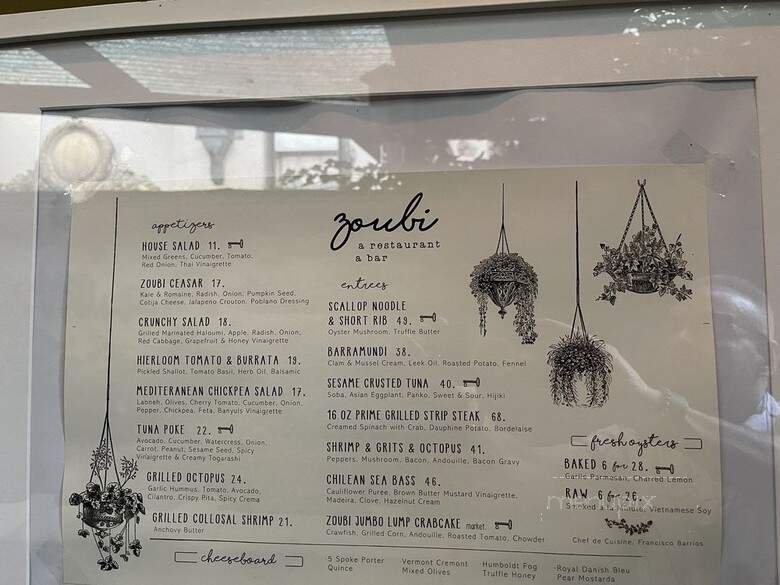 zoubi
a restaurant
a bar
appetizers
HOUSE SALAD 11.
Mixed Greens, Cucumber, Tomato,
Red Onion, Thai Vinaigrette
ZOUBI CEASAR 17.
Kale & Romaine, Radish, Onion, Pumpkin Seed,
Cotija Cheese, Jalapeno Crouton, Poblano Dressing
CRUNCHY SALAD 18.
Grilled Marinated Haloumi, Apple, Radish, Onion,
Red Cabbage, Grapefruit & Honey Vinaigrette
HIERLOOM TOMATO & BURRATA 19.
Pickled Shallot, Tomato Basil, Herb Oil, Balsamic
MEDITERANEAN CHICKPEA SALAD 17.
Labneh, Olives, Cherry Tomato, Cucumber, Onion,
Pepper, Chickpea, Feta, Banyuls Vinaigrette
TUNA POKE 22.
Avocado, Cucumber, Watercress, Onion,
Carrot, Peanut, Sesame Seed, Spicy
Vinaigrette & Creamy Togarashi
GRILLED OCTOPUS 24.
Garlic Hummus, Tomato, Avocado,
Cilantro, Crispy Pita, Spicy Crema
GRILLED COLLOSAL SHRIMP 21.
Anchovy Butter
entrees
SCALLOP NOODLE
& SHORT RIB 49.
Oyster Mushroom, Truffle Butter
BARRAMUNDI 38.
Clam & Mussel Cream, Leek Oil, Roasted Potato, Fennel
SESAME CRUSTED TUNA 40.
Soba, Asian Eggplant, Panko, Sweet & Sour, Hijiki
16 OZ PRIME GRILLED STRIP STEAK 68.
Creamed Spinach with Crab, Dauphine Potato, Bordelaise
SHRIMP & GRITS & OCTOPUS 41.
Peppers, Mushroom, Bacon, Andouille, Bacon Gravy
CHILEAN SEA BASS 46.
Cauliflower Puree, Brown Butter Mustard Vinaigrette,
Madeira, Clove, Hazelnut Cream
ZOUBI JUMBO LUMP CRABCAKE market.
Crawfish, Grilled Corn, Andouille, Roasted Tomato, Chowder
fresh oysters
BAKED 6 for 28.
Garlic Parmasan, Charred Lemon
RAW 6 for 26.
Smoked Vietnamese Soy
Chef de Cuisine, Francisco Barrios
cheeseboard
5 Spoke Porter
Quince
Vermont Cremont
Mixed Olives
-Humboldt Fog
Truffle Honey
-Royal Danish Bleu
Pear Mostarda